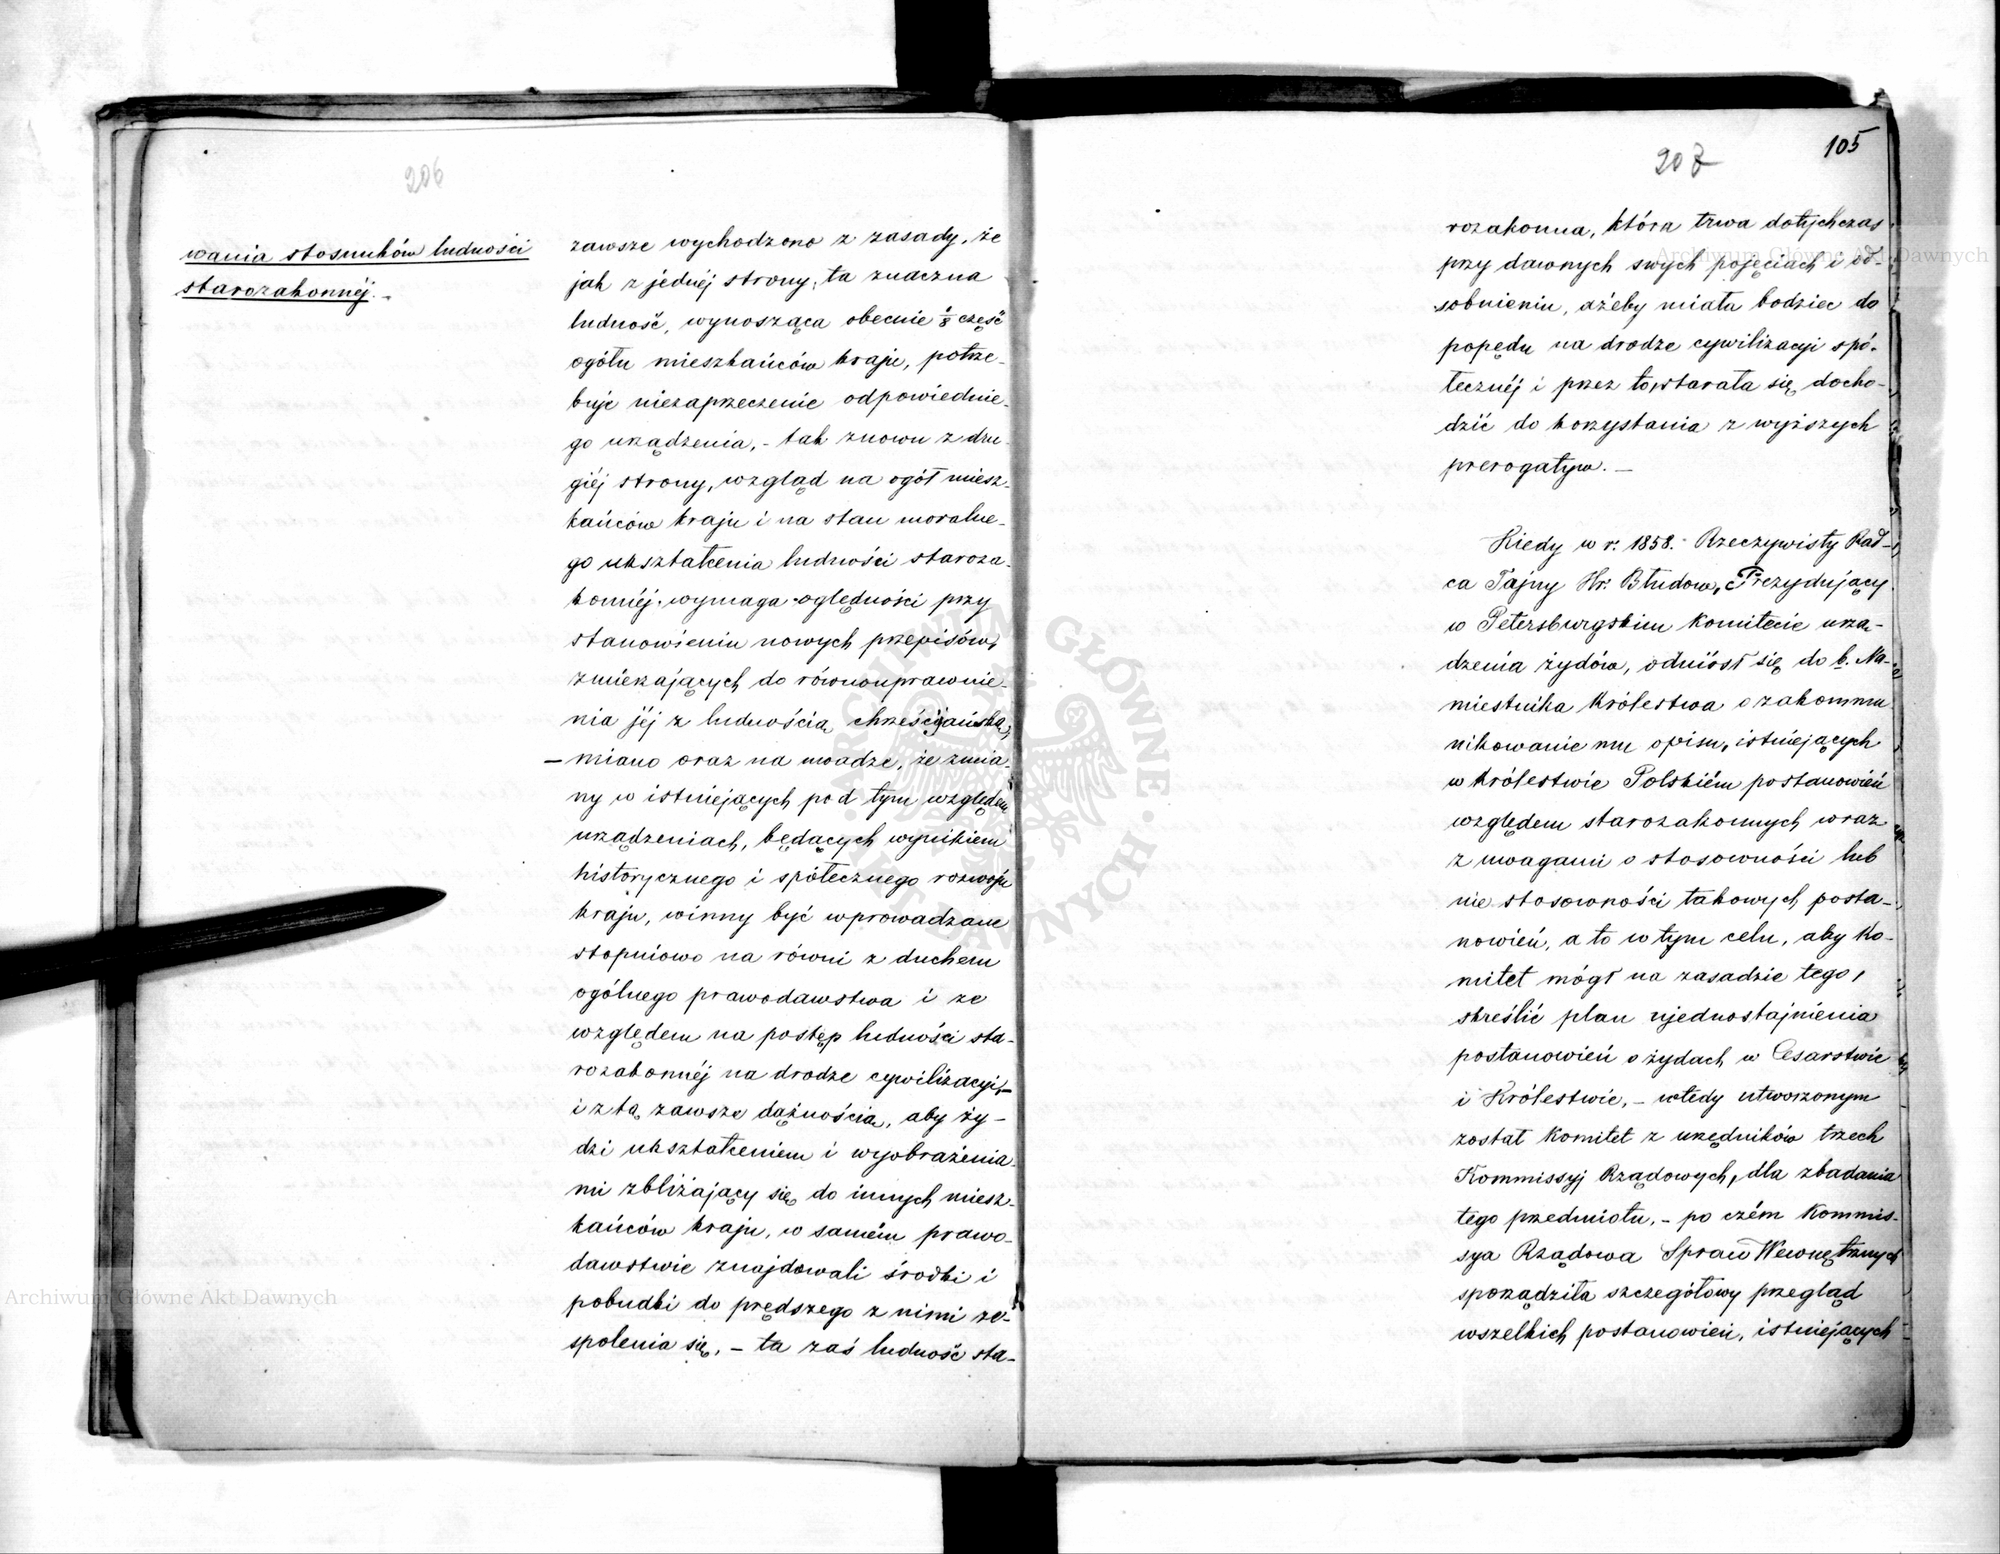 206
wania stosunków ludności
starozakonnéj. –
zawsze wychodzono z zasady, że
jak z jednéj strony, ta znaczna
ludność, wynosząca obecnie 1/8 część
ogółu mieszkańców kraju, potrze-
buje niezaprzeczenie odpowiednie-
go urządzenia, – tak znowu z dru-
giéj strony, wzgląd na ogół miesz-
kańców kraju i na stan moralne-
go ukształcenia ludności staroza-
konnéj, wymaga oględności przy
stanowieniu nowych przepisów,
zmierzających do równouprawnie-
nia jéj z ludnością chrześcijańską,
– miano oraz na uwadze, że zmia-
ny w istniejących pod tym względem
urządzeniach, będących wynikiem
historycznego i spółecznego rozwoju
kraju, winny być wprowadzane
stopniowo na równi z duchem
ogólnego prawodawstwa i ze
względem na postęp ludności sta-
rozakonnéj na drodze cywilizacyi, –
i z tą zawsze dążnością, aby ży-
dzi ukształceniem i wyobrażenia-
mi zbliżający się do innych miesz-
kańców kraju, w samém prawo-
dawstwie znajdowali środki i
pobudki do prędszego z nimi ze-
spolenia się, – ta zaś ludność sta-
207
105
rozakonna, która trwa dotychczas
przy dawnych swych pojęciach i od-
sobnieniu, ażeby miała bodziec do
popędu na drodze cywilizacyi spó-
łecznéj i przez to, starała się docho-
dzić do korzystania z wyższych
prerogatyw. –
Kiedy w r. 1858. Rzeczywisty Rad-
ca Tajny Hr. Błudow, Prezydujący
w Petersburgskim Komitecie urzą-
dzenia żydów, odniósł się do b. Na-
miestnika Królestwa o zakommu
nikowanie mu opisu, istniejących
w Królestwie Polskiém postanowień
względem starozakonnych wraz
z uwagami o stosowności lub
nie stosowności takowych posta-
nowień, a to w tym celu, aby Ko-
mitet mógł na zasadzie tego,
skreślić plan ujednostajnienia
postanowień o żydach w Cesarstwie
i Królestwie, – wtedy utworzonym
został Komitet z urzędników trzech
Kommissyj Rządowych, dla zbadania
tego przedmiotu, – po czém Kommis-
sya Rządowa Spraw Wewnętrznych
sporządziła szczegółowy przegląd
wszelkich postanowień, istniejących
Archiwum Główne Akt Dawnych
Archiwum Główne Akt Dawnych
ARCHIWUM GŁÓWNE AKT DAWNYCH